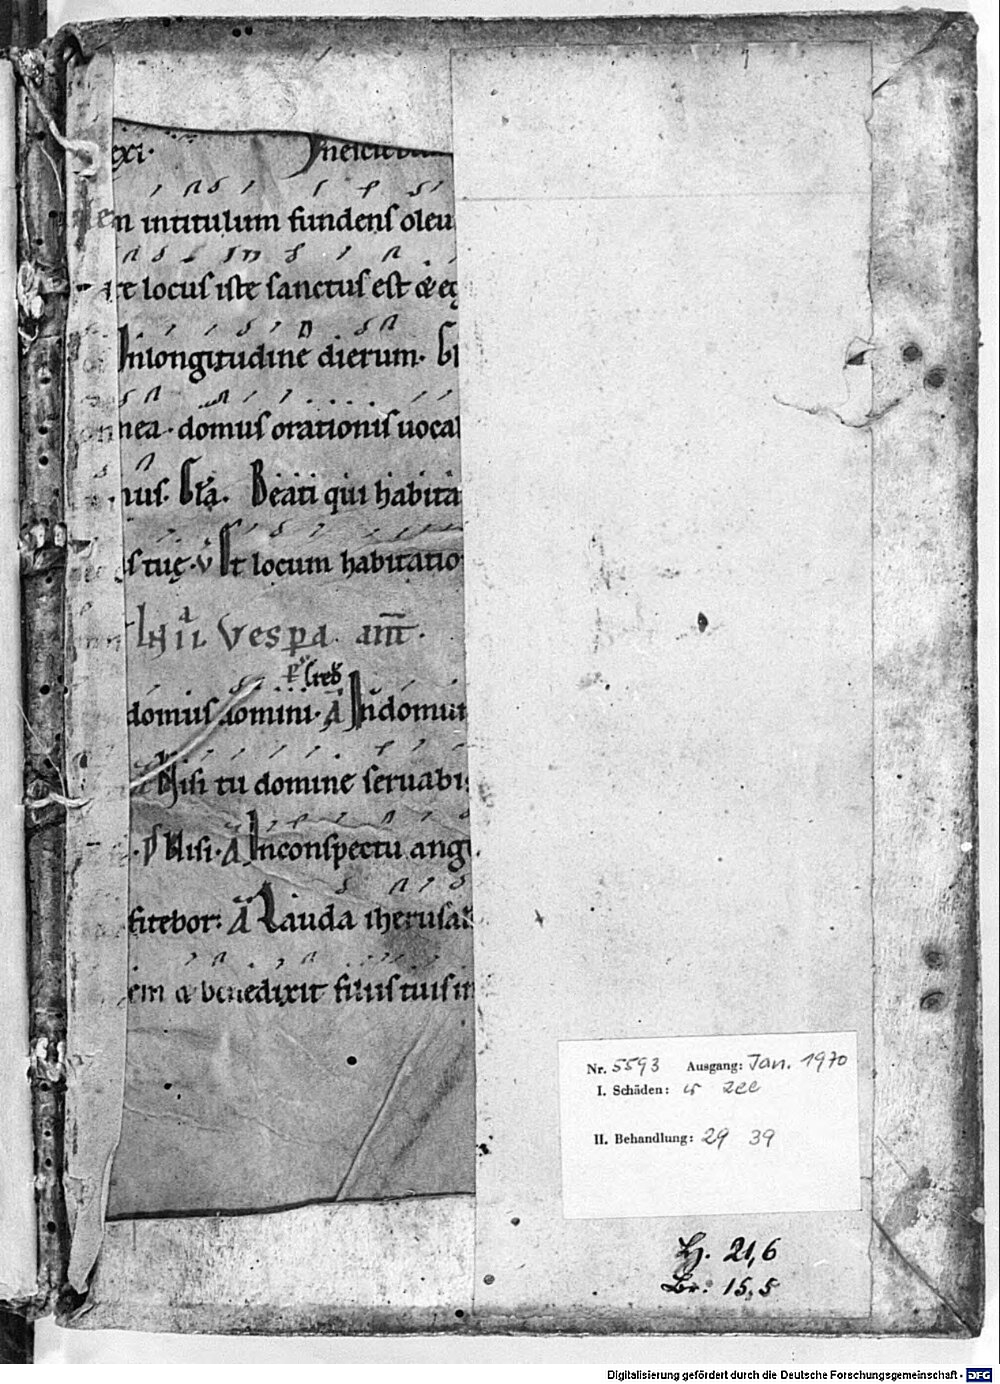 exi·
em intitulum fundenſ oleu
locuſ iſte ſanctuſ eſt &
Inlongitudine dierum·
nea· domuſ orationiſ uoca
nuſ· Gl̄a. Beati qui habita
ſ tuę· v̓ Et locum habitatio
Veſpa am̄.
pˢ Cređ
domuſ domini· A͞ Indomum
Niſi tu domine ſeruabiſ
· pˢ Niſi· A͞ Inconſpectu ang
fitebor: A͞ Lauda iheruſa
em & benedixit filiiſ tuiſ in
Nr. 5593 Ausgang: Jan. 1970
I. Schäden:
II. Behandlung: 29 39
H. 21,6
Br: 15,5
Digitalisierung gefördert durch die Deutsche Forschungsgemeinschaft - DFG